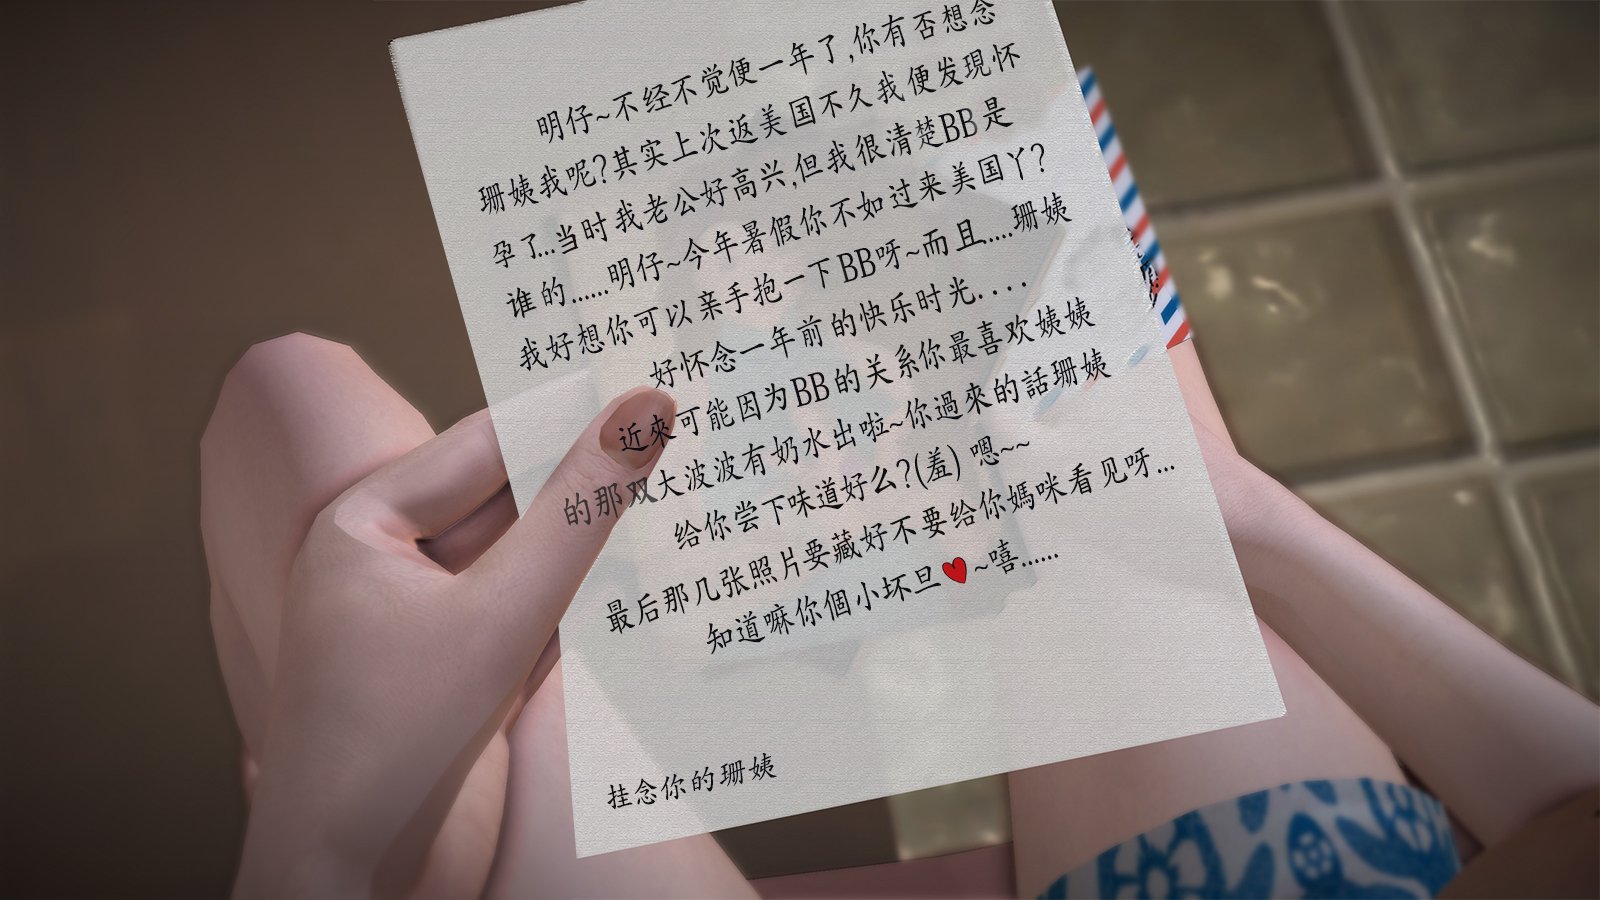 明仔~不经不觉便一年了,你有否想念
珊姨我呢?其实上次返美国不久我便发現怀
孕了...当时我老公好高兴,但我很清楚BB是
谁的......明仔~今年暑假你不如过来美国丫?
我好想你可以亲手抱一下BB呀~而且....珊姨
好怀念一年前的快乐时光....
近來可能因为BB的关系你最喜欢姨姨
的那双大波波有奶水出啦~你過來的話珊姨
给你尝下味道好么?(羞) 嗯~~
最后那几张照片要藏好不要给你媽咪看见呀...
知道嘛你個小坏旦♥~嘻......
挂念你的珊姨